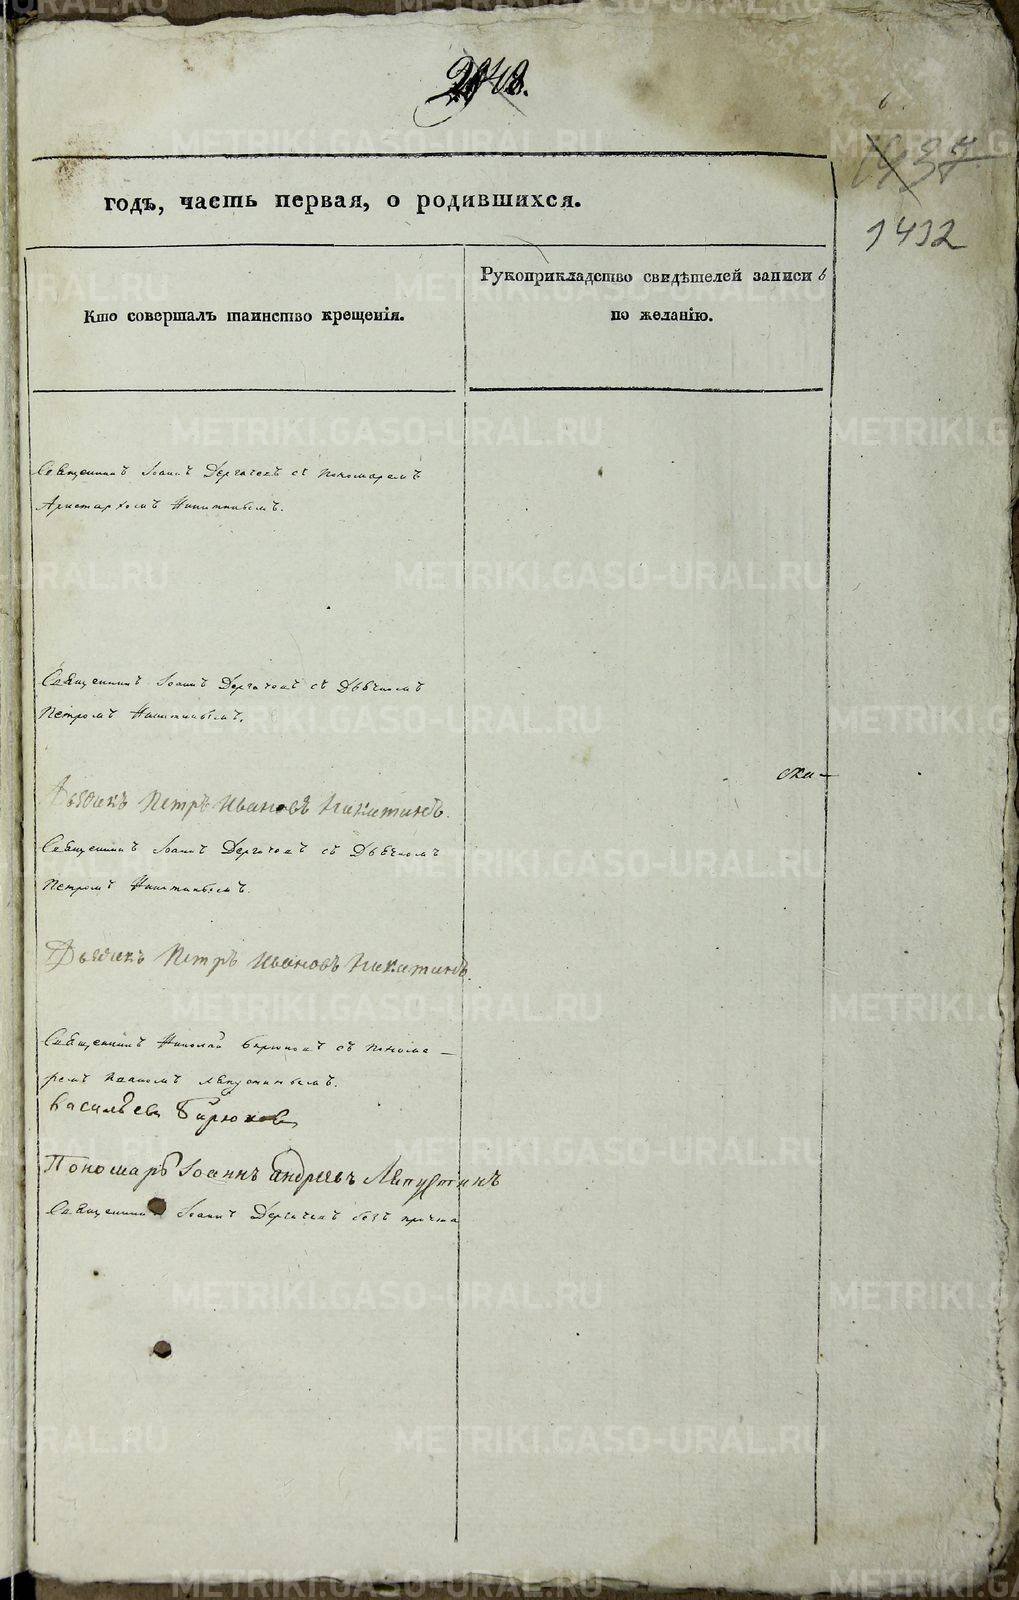 1412
годъ, часть первая, о родившихся.
Кто совершалъ таинство крещенія.
Рукоприкладство свидѣтелей записи
по желанію.
Священникъ Іоаннъ Дергачевъ съ пономаремъ
Аристархомъ Никитинымъ.
Священникъ Іоаннъ Дергачевъ съ Дьячкомъ
Петромъ Никитинымъ.
ска-
Дьячекъ Петръ Ивановъ Никитинъ.
Священникъ Іоаннъ Дергачевъ съ Дьячкомъ
Петромъ Никитинымъ.
Дьячекъ Петръ Ивановъ Никитинъ.
Священникъ Николай Бирюковъ съ понома-
ремъ Ляпустинымъ.
Васильевъ Бирюковъ
Пономарь Іоаннъ Андреевъ Ляпустинъ
Священникъ Іоаннъ Дергачевъ безъ причта
METRIKI.GASO-URAL.RU